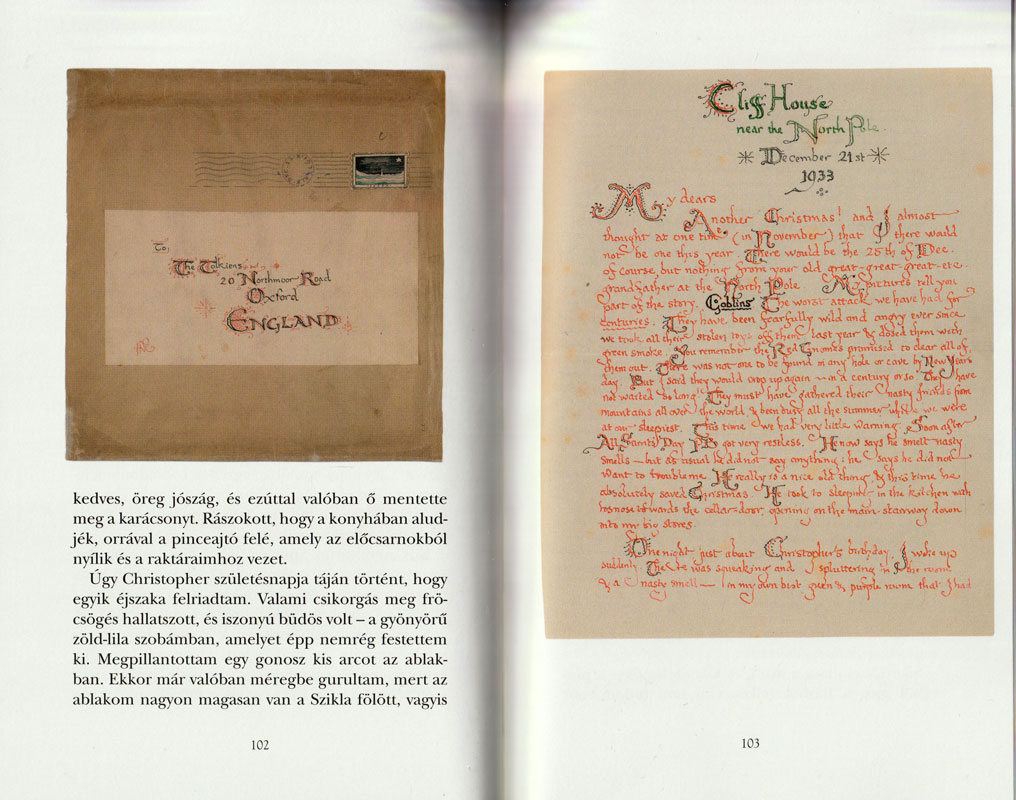 To,
The Tolkiens
20 Northmoor Road
Oxford
ENGLAND
kedves, öreg jószág, és ezúttal valóban ő mentette
meg a karácsonyt. Rászokott, hogy a konyhában alud-
jék, orrával a pinceajtó felé, amely az előcsarnokból
nyílik és a raktáraimhoz vezet.
Úgy Christopher születésnapja táján történt, hogy
egyik éjszaka felriadtam. Valami csikorgás meg frö-
csögés hallatszott, és iszonyú büdös volt – a gyönyörű
zöld-lila szobámban, amelyet épp nemrég festettem
ki. Megpillantottam egy gonosz kis arcot az ablak-
ban. Ekkor már valóban méregbe gurultam, mert az
ablakom nagyon magasan van a Szikla fölött, vagyis
102
Cliff House
near the North Pole
December 21st
1933
My dears
Another Christmas! and I almost
thought at one time (in November) that there would
not be one this year. There would be the 25th of Dec.
of course, but nothing from your old great-great-great-etc.
grandfather at the North Pole. My pictures tell you
part of the story. Goblins. The worst attack we have had for
centuries. They have been fearfully wild and angry ever since
we took all their stolen toys off them last year & dosed them with
green smoke. You remember the Red Gnomes promised to clear all of
them out. There was not one to be found in any hole or cave by New Years
day. But I said they would crop up again – in a century or so. They have
not waited so long! They must have gathered their nasty friends from
mountains all over the world, & been busy all the summer while we were
at our sleepiest. This time we had very little warning. Soon after
All Saints' Day PB got very restless. He now says he smelt nasty
smells – but as usual he did not say anything: he says he did not
want to trouble me. He really is a nice old thing, & this time he
absolutely saved Christmas. He took to sleeping in the kitchen with
his nose towards the cellar-door, opening on the main-stairway down
into my big stores.
One night just about Christopher's birthday, I woke up
suddenly. There was squeaking and spluttering in the room
& a nasty smell – in my own best green & purple room that I had
103